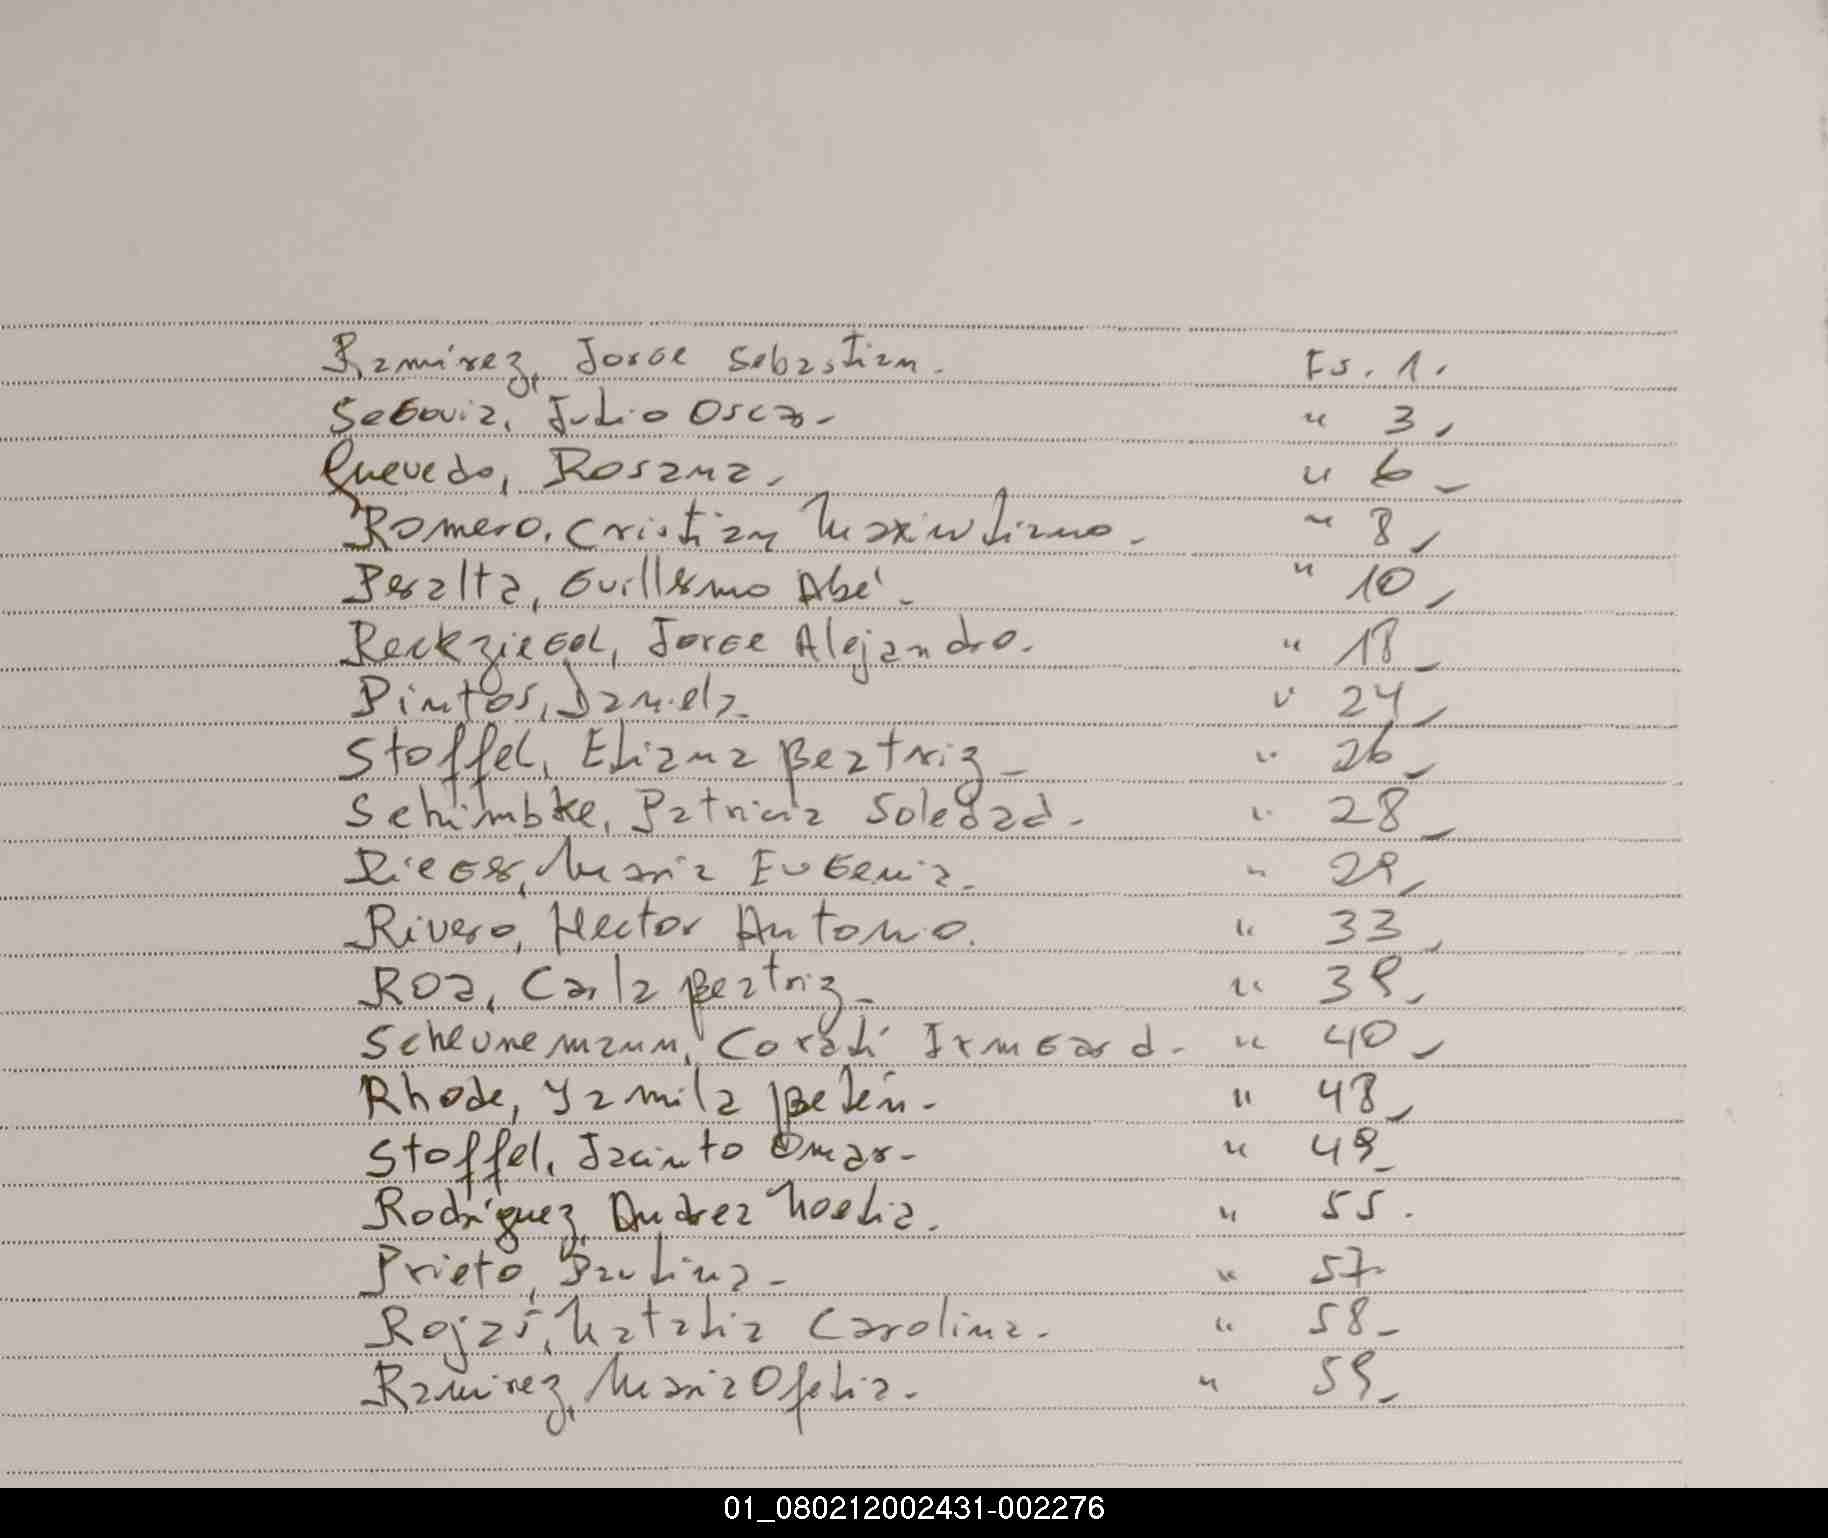 Ramírez, Jorge Sebastian. Fs. 1.
Segovia, Julio Oscar. " 3.
Quevedo, Rosana. " 6_
Romero, Cristian Maximiliano. " 8_
Peralta, Guillermo Abé. " 10_
Reckziegel, Jorge Alejandro. " 18_
Pintos, Daniela. " 24_
Stoffel, Eliana Beatriz_ " 26_
Schimbke, Patricia Soledad. " 28_
Rieger, Maria Eugenia. " 29_
Rivero, Hector Antonio. " 33_
Roa, Carla Beatriz_ " 39_
Scheunemann, Coralí Irmgard. " 40_
Rhode, Yamila Belén. " 48_
Stoffel, Jacinto Omar. " 49_
Rodríguez, Andrea Noelia. " 55.
Prieto, Paulina_ " 57.
Rojas, Natalia Carolina. " 58_
Ramirez, Maria Ofelia. " 59_
01_080212002431-002276